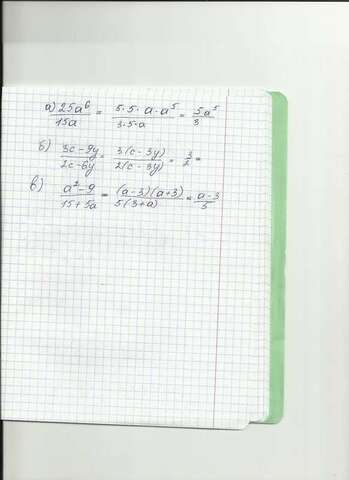 а) 25a⁶/15a = 5·5·a·a⁵/3·5·a = 5a⁵/3
б) 3c-9y/2c-6y = 3(c-3y)/2(c-3y) = 3/2 =
в) a²-9/15+5a = (a-3)(a+3)/5(3+a) = a-3/5